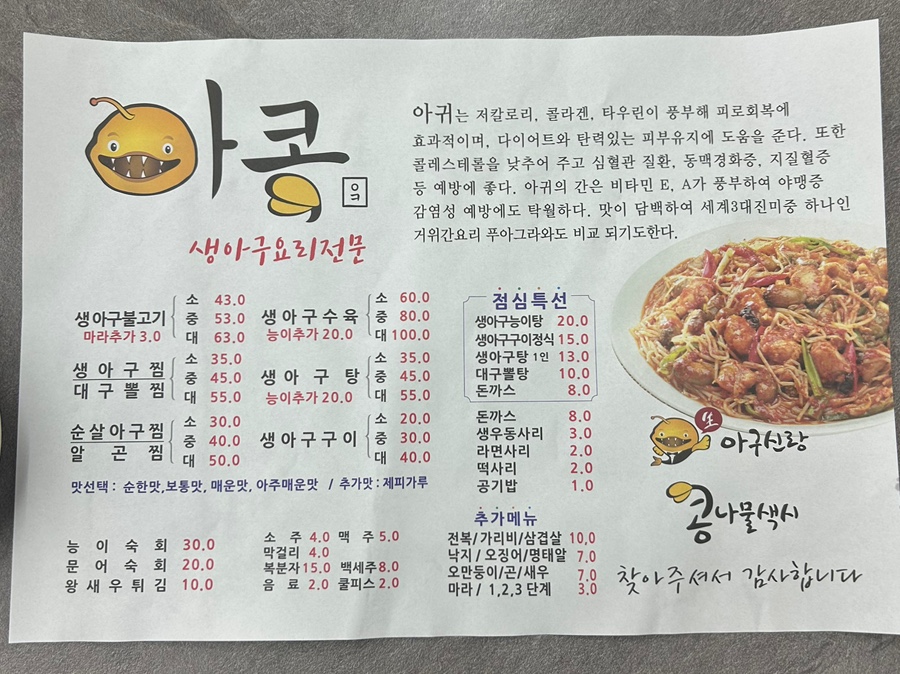 아콩
아콩
생아구요리전문
아귀는 저칼로리, 콜라겐, 타우린이 풍부해 피로회복에
효과적이며, 다이어트와 탄력있는 피부유지에 도움을 준다. 또한
콜레스테롤을 낮추어 주고 심혈관 질환, 동맥경화증, 지질혈증
등 예방에 좋다. 아귀의 간은 비타민 E, A가 풍부하여 야맹증
감염성 예방에도 탁월하다. 맛이 담백하여 세계3대진미중 하나인
거위간요리 푸아그라와도 비교 되기도한다.
생아구불고기 소 43.0
중 53.0
마라추가 3.0 대 63.0
생아구찜 소 35.0
중 45.0
대구뽈찜 대 55.0
순살아구찜 소 30.0
중 40.0
알곤찜 대 50.0
생아구수육 소 60.0
중 80.0
능이추가 20.0 대 100.0
생아구탕 소 35.0
중 45.0
능이추가 20.0 대 55.0
생아구구이 소 20.0
중 30.0
대 40.0
맛선택 : 순한맛,보통맛, 매운맛, 아주매운맛 / 추가맛 : 제피가루
능이숙회 30.0
문어숙회 20.0
왕새우튀김 10.0
소주 4.0 맥주 5.0
막걸리 4.0
복분자 15.0 백세주 8.0
음료 2.0 쿨피스 2.0
점심특선
생아구능이탕 20.0
생아구구이정식 15.0
생아구탕 1인 13.0
대구뽈탕 10.0
돈까스 8.0
돈까스 8.0
생우동사리 3.0
라면사리 2.0
떡사리 2.0
공기밥 1.0
추가메뉴
전복/가리비/삼겹살 10,0
낙지/오징어/명태알 7.0
오만둥이/곤/새우 7.0
마라 / 1,2,3 단계 3.0
生
아구신랑
콩나물색시
찾아주셔서 감사합니다